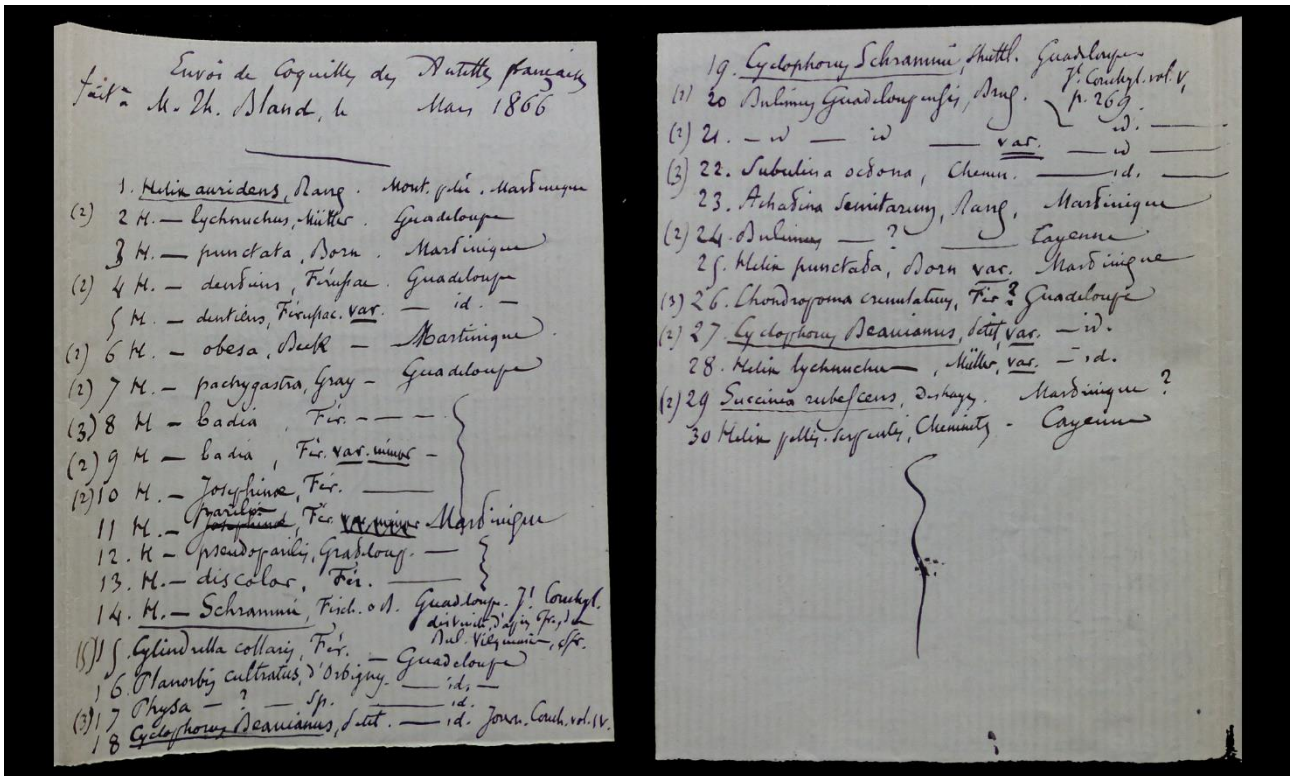 Envoi de Coquilles des Antilles françaises
fait à M. Th. Bland, le Mars 1866
1. Helix auridens, Rang. Mont. pelée. Martinique
(2) 2 H. — lychnuchus, Müller. Guadeloupe
3 H. — punctata, Born. Martinique
(2) 4 H. — dentiens, Férussac. Guadeloupe
5 H. — dentiens, Férussac. var. — id. —
(2) 6 H. — obesa, Beck — Martinique
(2) 7 H. — pachygastra, Gray — Guadeloupe
(3) 8 H — badia, Fér. — — —
(2) 9 H — badia, Fér. var. minor —
(2) 10 H. — Josephinæ, Fér. ——
11 H. — parilis, Fér. Martinique
12. H — pseudoparilis, Grateloup. —
13. H. — discolor, Fér. ——
14. H. — Schrammi, Fisch. Guadeloupe. Jl. Conchyl.
(5) 15. Cylindrella collaris, Fér. — Guadeloupe
16. Planorbis cultratus, d'Orbigny. — id. —
(3) 17 Physa — ? — sp. —— id.
18 Cyclophorus Beauianus, Petit. — id. Journ. Conch. vol. IV.
19. Cyclophorus Schrammi, Shuttl. Guadeloupe
Jl. Conchyl. vol. V,
(1) 20 Bulimus Guadeloupensis, Brug. p. 269.
(2) 21. — id — id — var. — id. —
(3) 22. Subulina octona, Chemn. —— id. ——
23. Achatina semitarum, Rang, Martinique
(2) 24. Bulimus — ? —— Cayenne
25. Helix punctata, Born var. Martinique
(3) 26. Chondropoma crenulatum, Fér ? Guadeloupe
(2) 27. Cyclophorus Beauianus, Petit, var. — id.
28. Helix lychnuchus, Müller, var. — id.
(2) 29 Succinea rubescens, Deshayes. Martinique ?
30 Helix pellis-serpentis, Chemnitz — Cayenne